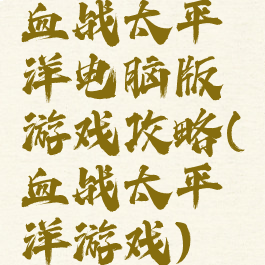 血战太平
洋电脑版
游戏攻略(
血战太平
洋游戏)